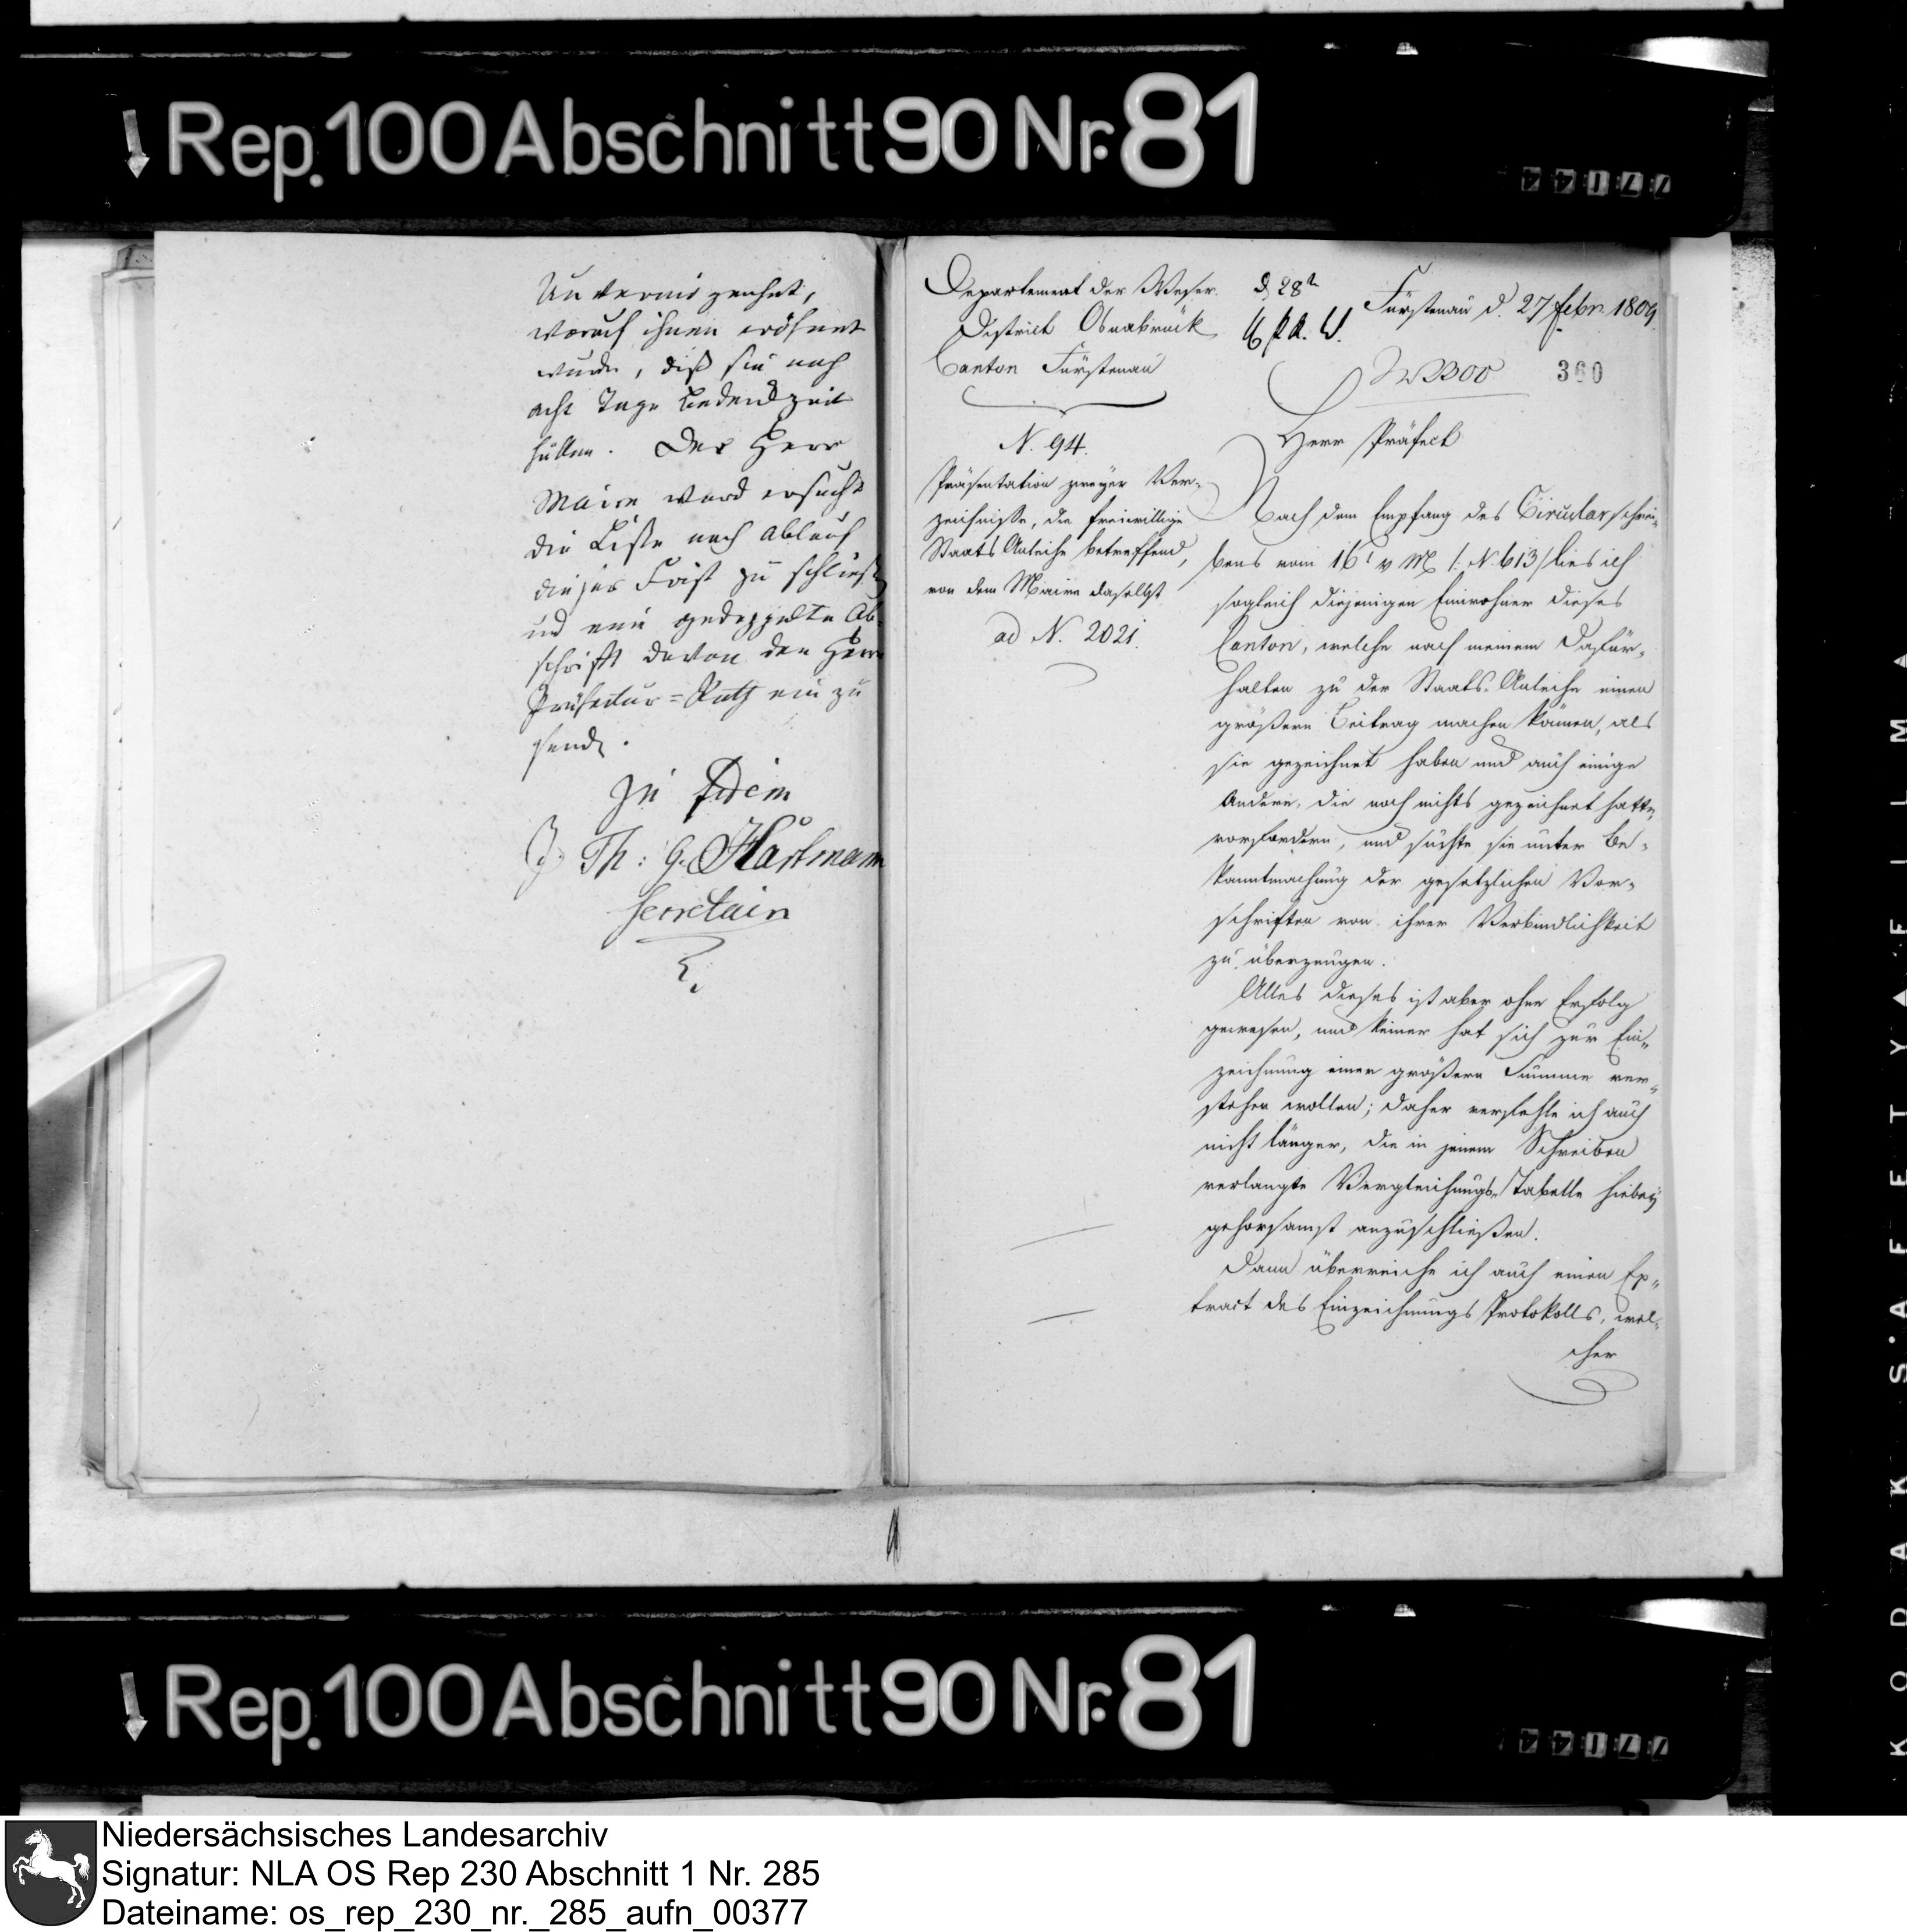 Rep. 100 Abschnitt 90 Nr. 81
Unvermögenheit,
worauf ihnen eröfnet
wurde, daß sie noch
acht Tage Bedenckzeit
hätten. Der Herr
Maire ward ersucht
die Liste nach Ablauf
dieser Frist zu schließen
und eine gedoppelte Ab-
schrift davon den Herrn
Präfectur=Rath ein zu
senden.
In Fidem
J. Th: G. Hartmann
Secretair
Departement der Weser.
District Osnabrück
Canton Fürstenau
N. 94.
Präsentation zweyer Ver-
zeichniße, die freiwillige
Staats Anleihe betreffend,
von dem Maire daselbst
ad N. 2021.
d 28t
Fürstenau d. 27 febr. 1809.
360
Herr Präfect
Nach dem Empfang des Circularschrei-
bens vom 16t v M /: N. 613/ lies ich
sogleich diejenigen Einwohner dieses
Canton, welche nach meinem Dafür-
halten zu der Staats-Anleihe einen
größern Beitrag machen können, als
sie gezeichnet haben und auch einige
Andere, die noch nichts gezeichnet hatten,
vorfordern, und suchte sie unter Be-
kanntmachung der gesetzlichen Vor-
schriften von ihrer Verbindlichkeit
zu überzeugen.
Alles dieses ist aber ohne Erfolg
gewesen, und keiner hat sich zur Ein-
zeichnung einer größern Summe ver-
stehen wollen; daher verfehle ich auch
nicht länger, die in jenem Schreiben
verlangte Vergleichungs-Tabelle hiebey
gehorsamst anzuschließen.
Dann überreiche ich auch einen Ex-
tract des Einzeichnungs Protokolls, wel-
cher
KODAK SAFETY FILM
Rep. 100 Abschnitt 90 Nr. 81
Niedersächsisches Landesarchiv
Signatur: NLA OS Rep 230 Abschnitt 1 Nr. 285
Dateiname: os_rep_230_nr._285_aufn_00377